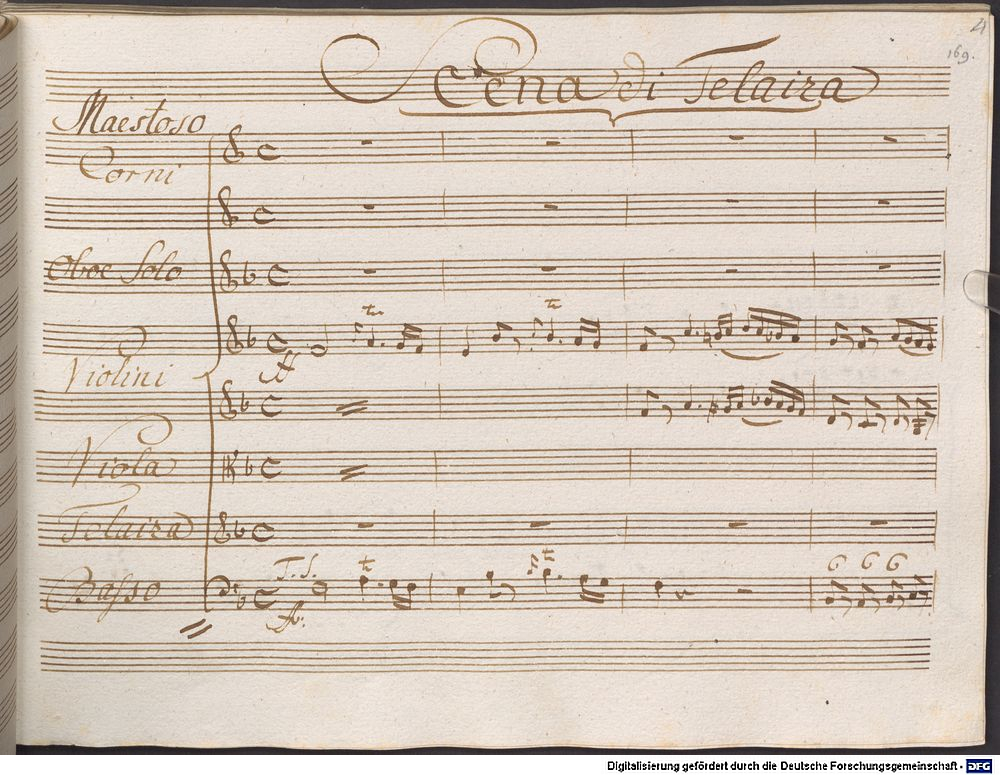 4
169.
Scena di Telaira
Maestoso
Corni
Oboe Solo
tr
tr
Violini
ff
Viola
Telaira
T. S.
tr
tr
6 6 6
Basso
Digitalisierung gefördert durch die Deutsche Forschungsgemeinschaft - DFG